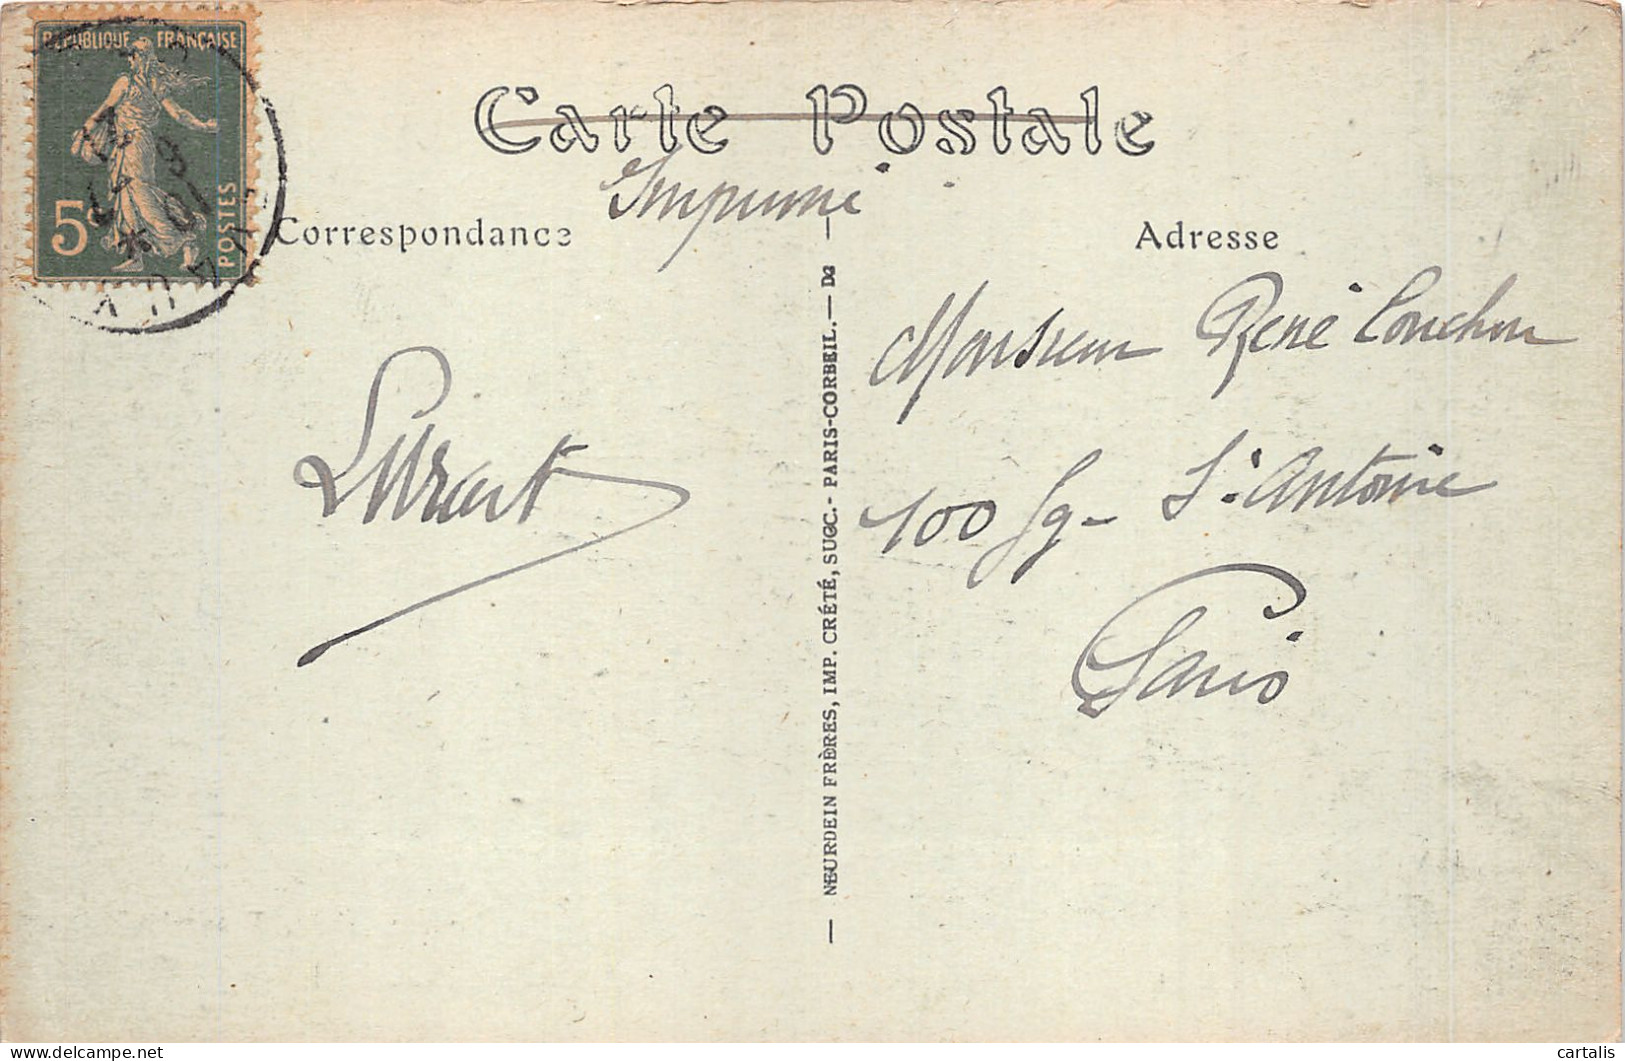 REPUBLIQUE FRANÇAISE
5c
POSTES
Carte Postale
Imprimé
Correspondance
Adresse
Monsieur René Couchon
100 Fg- St Antoine
Paris
NEURDEIN FRÈRES, IMP. CRÉTÉ, SUCC. - PARIS-CORBEIL. — D2
delcampe.net
cartalis